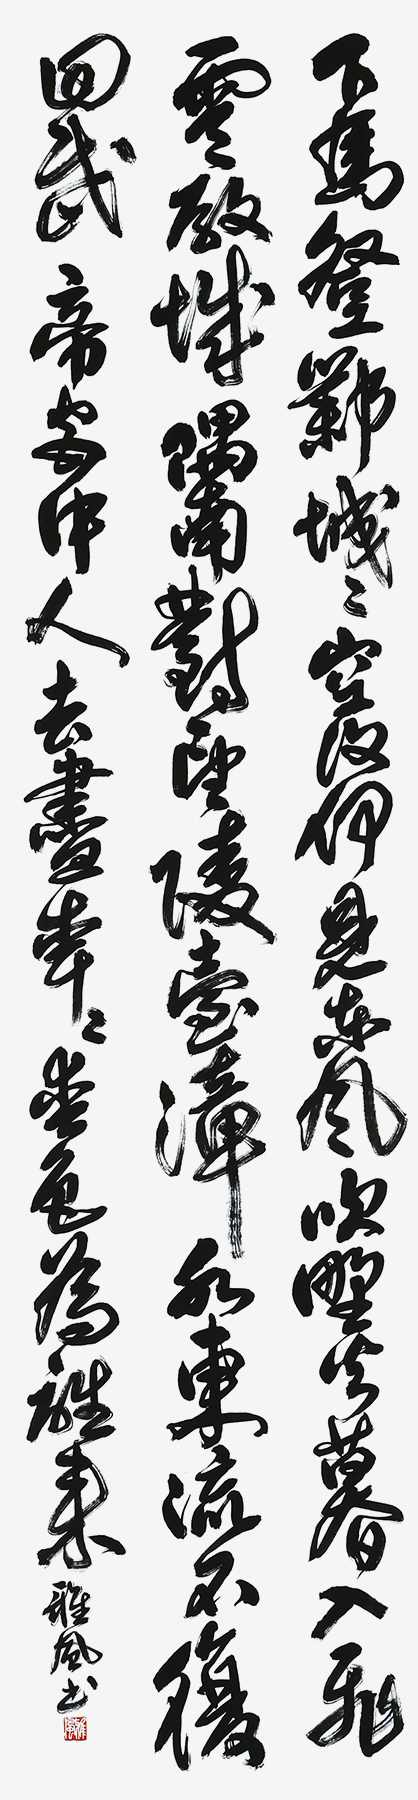 下馬登鄴城〻空復何見東風吹野火暮入飛
雲殿城隅南對望陵臺漳水東流不復
回武帝宮中人去盡年〻春色為誰來 雅風書